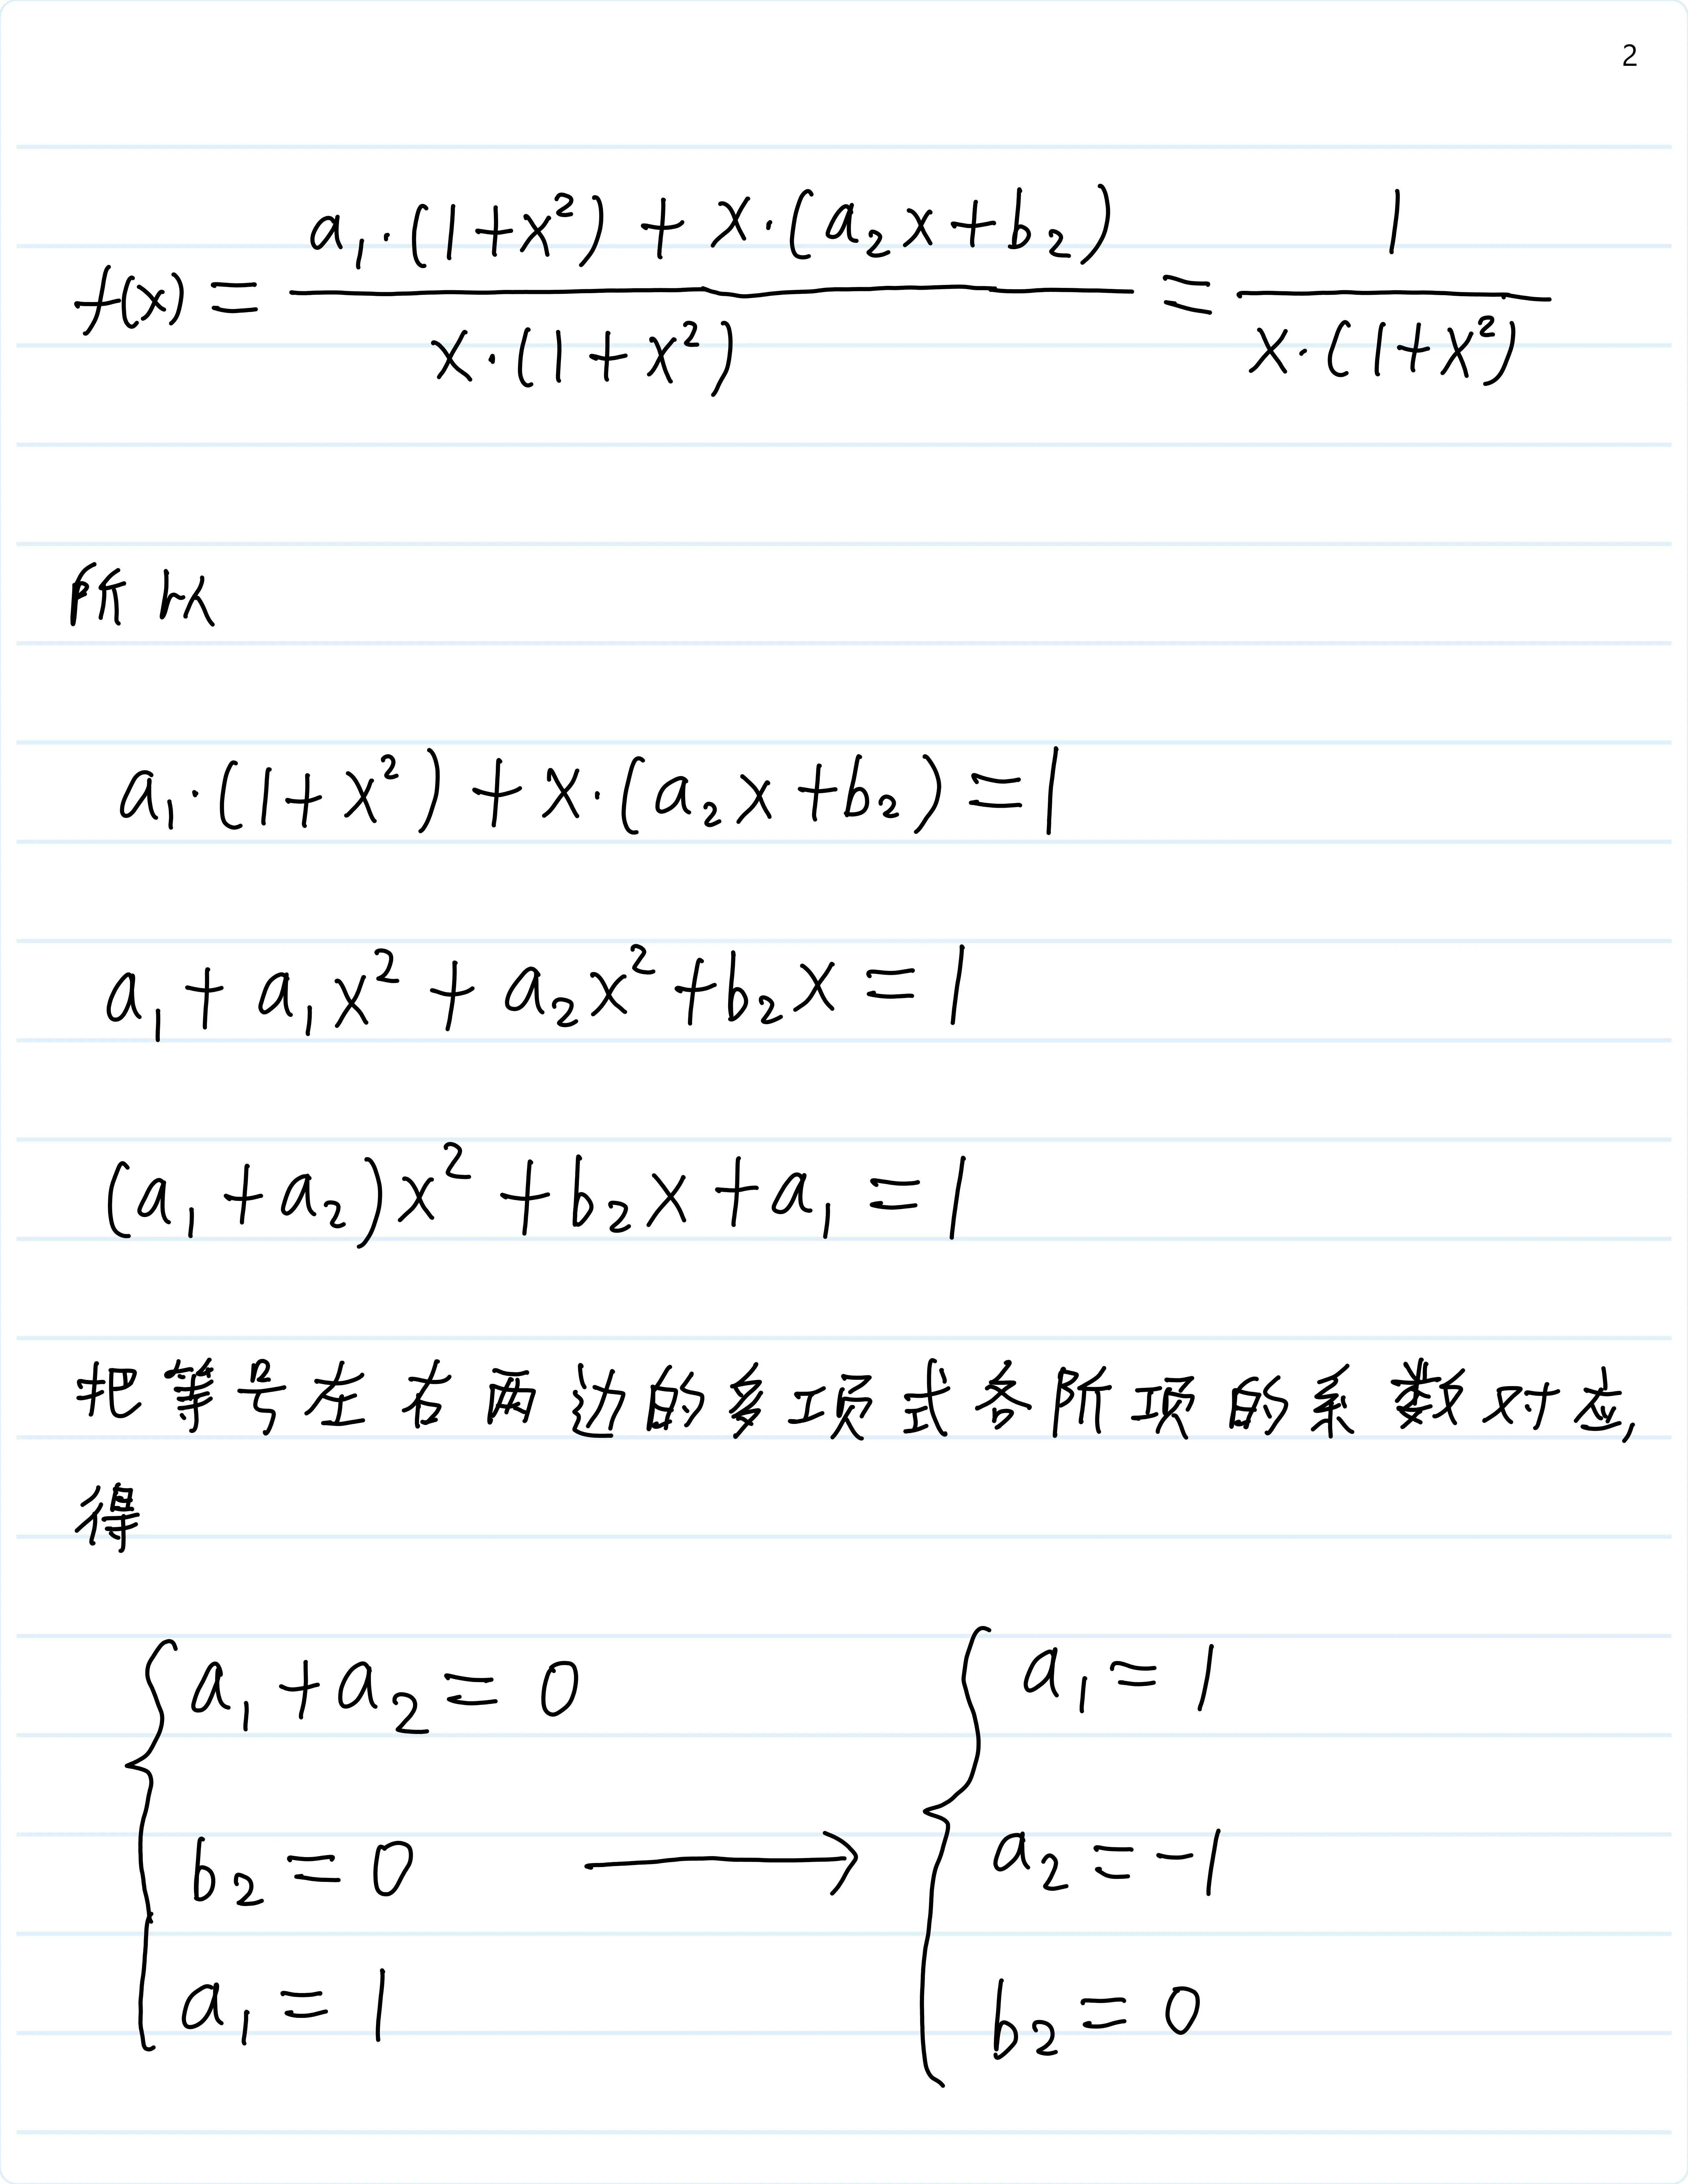 2
f(x) = \frac{a_1·(1+x^2) + x·(a_2x+b_2)}{x·(1+x^2)} = \frac{1}{x·(1+x^2)}
所以
a_1·(1+x^2) + x·(a_2x+b_2) = 1
a_1 + a_1x^2 + a_2x^2 + b_2x = 1
(a_1+a_2)x^2 + b_2x + a_1 = 1
把等号左右两边的多项式各阶项的系数对应,
得
{ a_1+a_2 = 0 { a_1 = 1
b_2 = 0 → a_2 = -1
a_1 = 1 b_2 = 0